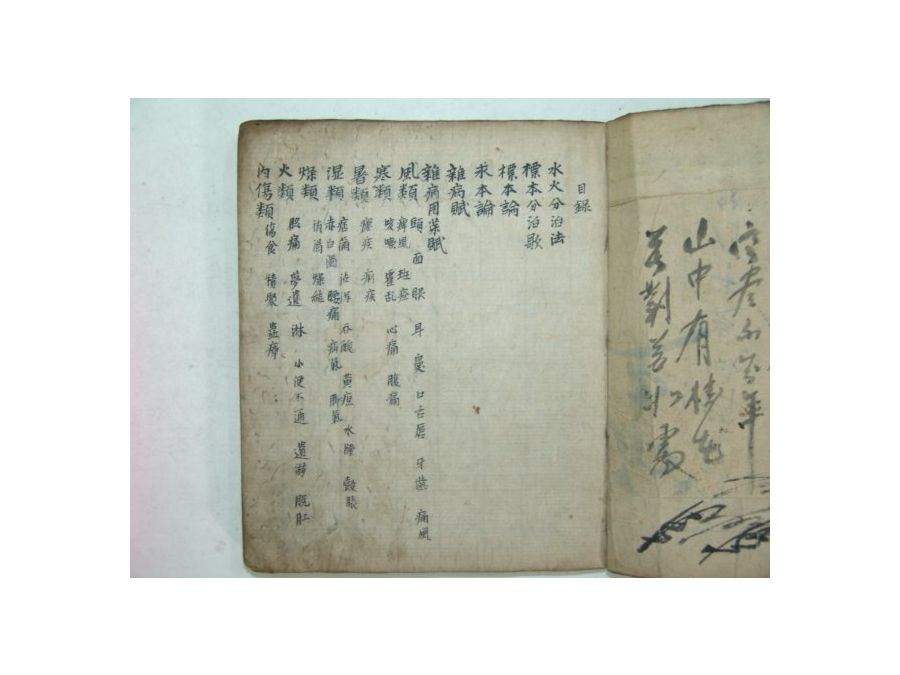 山中有
目錄
水火分治法
標本分治歌
標本論
求本論
雜病賦
雜病用菜賦
風類 頭 面 眼 耳 口舌唇 牙齒 痛風
痺風 斑疹
寒類 咳嗽 霍乱 心痛 腹痛
暑類 瘧疾 痢疾
湿類 痞滿 泄瀉 吞酸 黄疸 水腫 鼓脹
赤白濁 腰痛 疝氣 脚氣
燥類 消渴 燥結
火類 痛 夢遺 淋 小便不通 遺溺 脱肛
內傷類 傷食 積聚 蟲